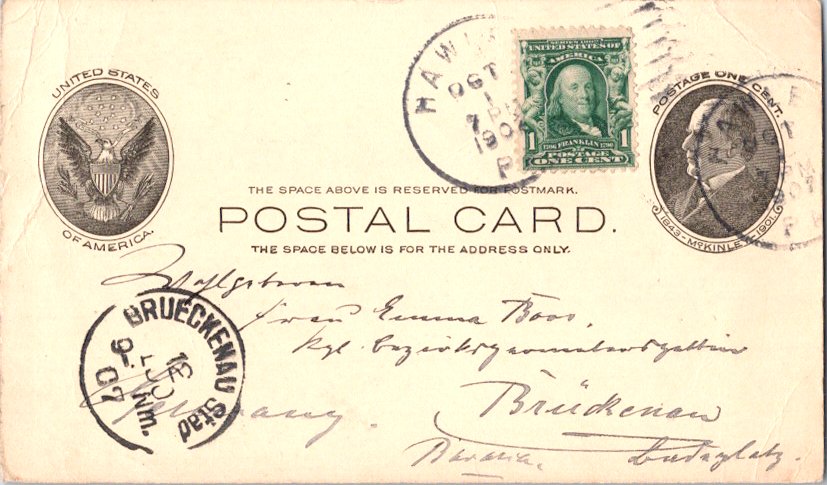 HAW
OCT
1
7 PM
190
P
SERIES 1902
UNITED STATES OF
AMERICA
1 1706 FRANKLIN 1790 1
POSTAGE
ONE CENT
UNITED STATES
OF AMERICA.
POSTAGE ONE CENT.
1843-McKINLEY-1901
THE SPACE ABOVE IS RESERVED FOR POSTMARK.
POSTAL CARD.
THE SPACE BELOW IS FOR THE ADDRESS ONLY.
Wohlgeboren
Frau Emma Boos,
Kgl. Bezirksgeometersgattin
Brückenau
Germany.
Bavaria.
BRUECKENAU Stad
13
OCT
Nm.
07